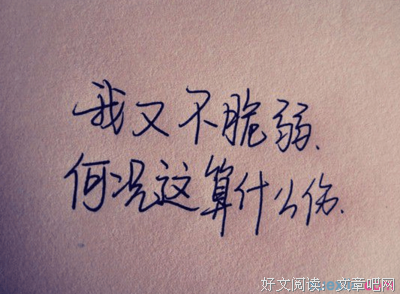 我又不脆弱、
何况这算什么伤、
好文阅读:文章吧网